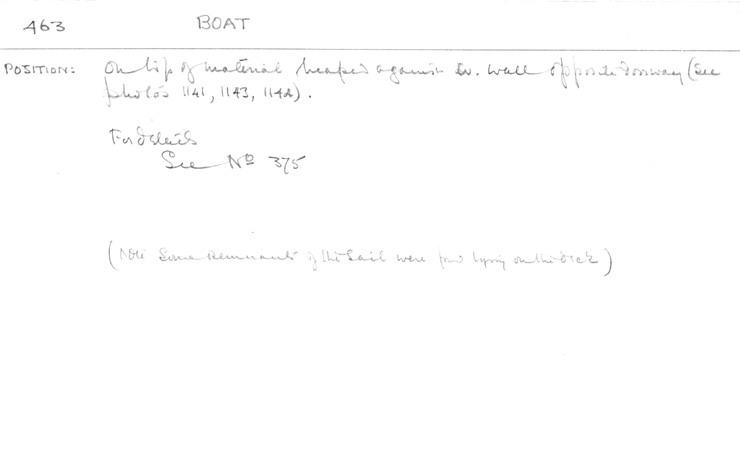 463 BOAT
POSITION: On top of material heaped against W. wall opposite doorway (See
photo's 1141, 1143, 1144).
For details
See No 375
(Note Some remnants of the sail were found lying on the deck)